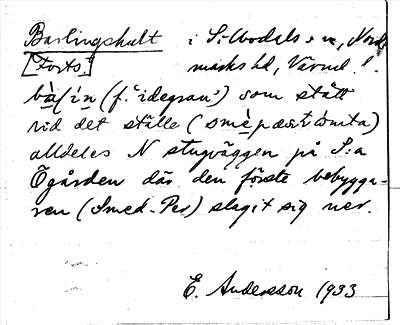 Barlingshult i Silbodals sn, Nord-
[Forts.] marks hd, Värml. l.
(f. 'idegran') som stått
vid det ställe
alldeles N stugväggen på S:a
Ögården där den förste bebygga-
ren (Smed-Per) slagit sig ner.
E. Andersson 1933